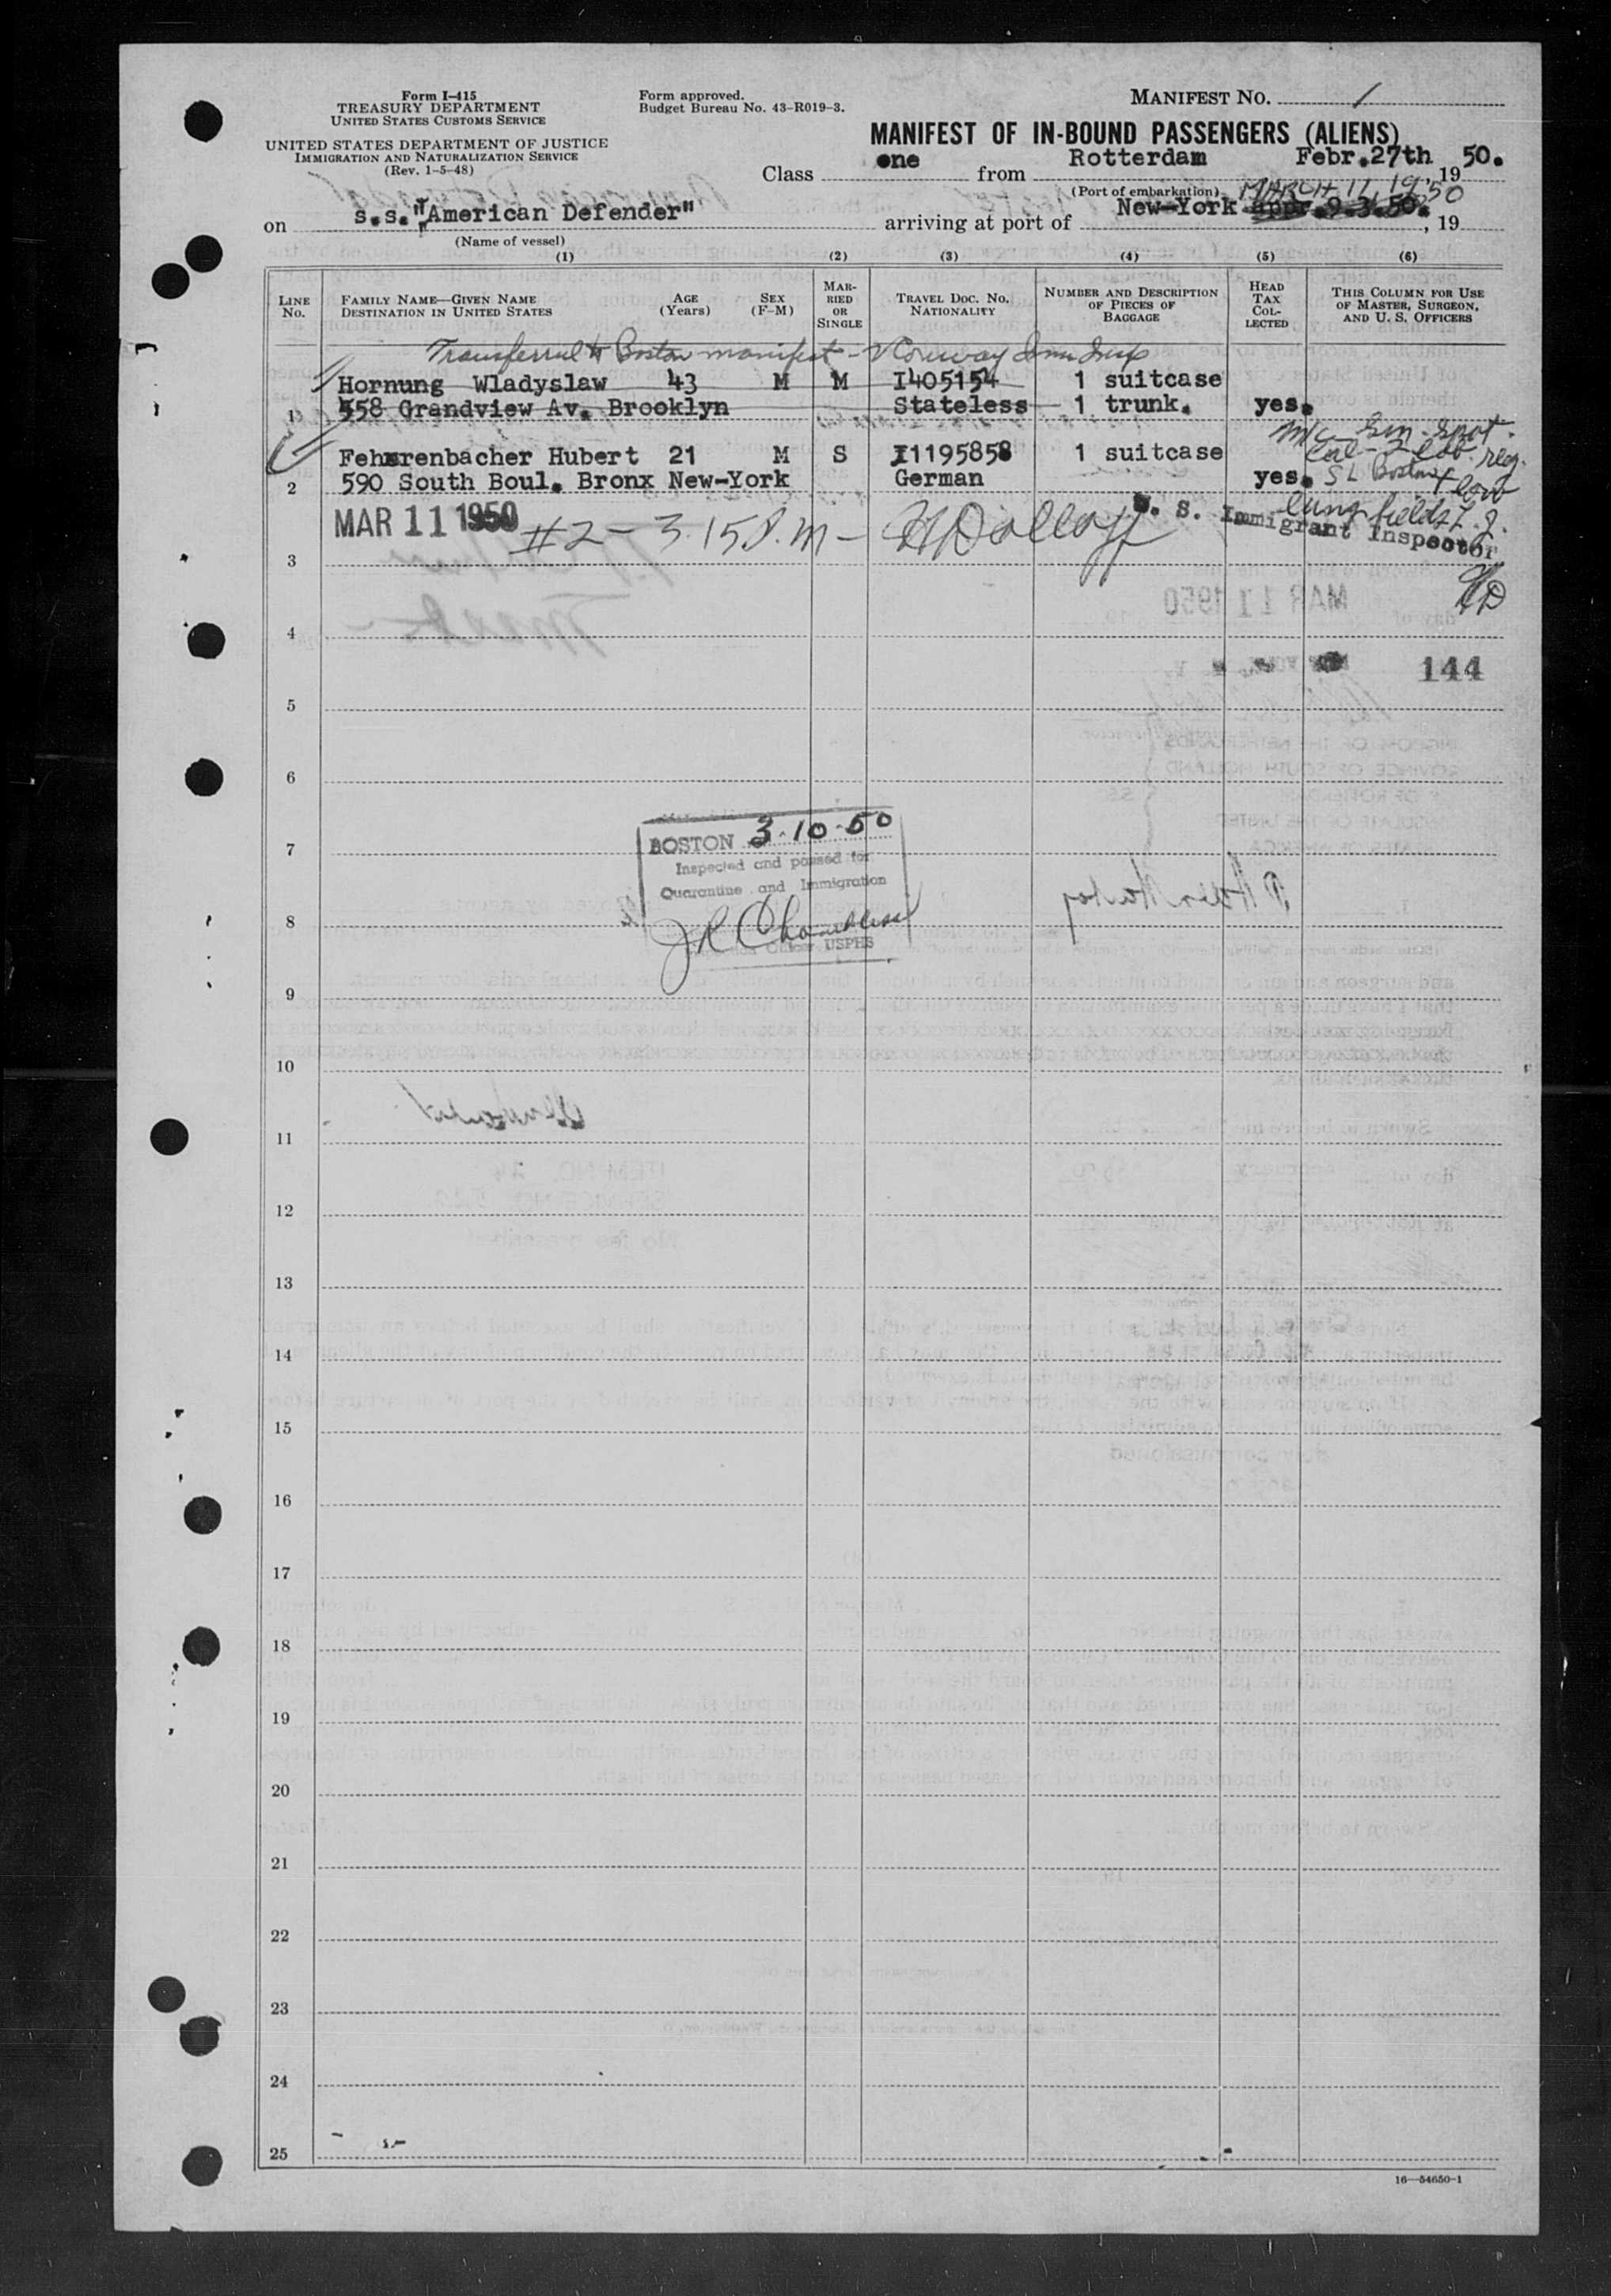 Form I-415
TREASURY DEPARTMENT
UNITED STATES CUSTOMS SERVICE
UNITED STATES DEPARTMENT OF JUSTICE
IMMIGRATION AND NATURALIZATION SERVICE
(Rev. 1-5-48)
Form approved.
Budget Bureau No. 43-R019-3.
MANIFEST NO. 1
MANIFEST OF IN-BOUND PASSENGERS (ALIENS)
Class one from Rotterdam Febr.27th, 1950.
(Port of embarkation) MARCH 11, 1950
on s.s."American Defender" arriving at port of New-York appr.9.3.50., 19
(Name of vessel)
(1) (2) (3) (4) (5) (6)
LINE No. FAMILY NAME—GIVEN NAME DESTINATION IN UNITED STATES AGE (Years) SEX (F-M) MARRIED OR SINGLE TRAVEL DOC. NO. NATIONALITY NUMBER AND DESCRIPTION OF PIECES OF BAGGAGE HEAD TAX COLLECTED THIS COLUMN FOR USE OF MASTER, SURGEON, AND U. S. OFFICERS
Transferred to Boston manifest - Conway Imm Insp
Hornung Wladyslaw 43 M M I405154 1 suitcase
1 558 Grandview Av. Brooklyn Stateless 1 trunk. yes.
Fehrenbacher Hubert 21 M S I1195858 1 suitcase
2 590 South Boul. Bronx New-York German yes. S L Boston
lung fields
MAR 11 1950 #2 - 3.15 P.m - H Dolloff U. S. Immigrant Inspector
3
HD
4
144
5
6
7
BOSTON 3-10-50
Inspected and passed for
Quarantine and Immigration
8
USPHS
9
10
11
12
13
14
15
16
17
18
19
20
21
22
23
24
25
16—54650-1